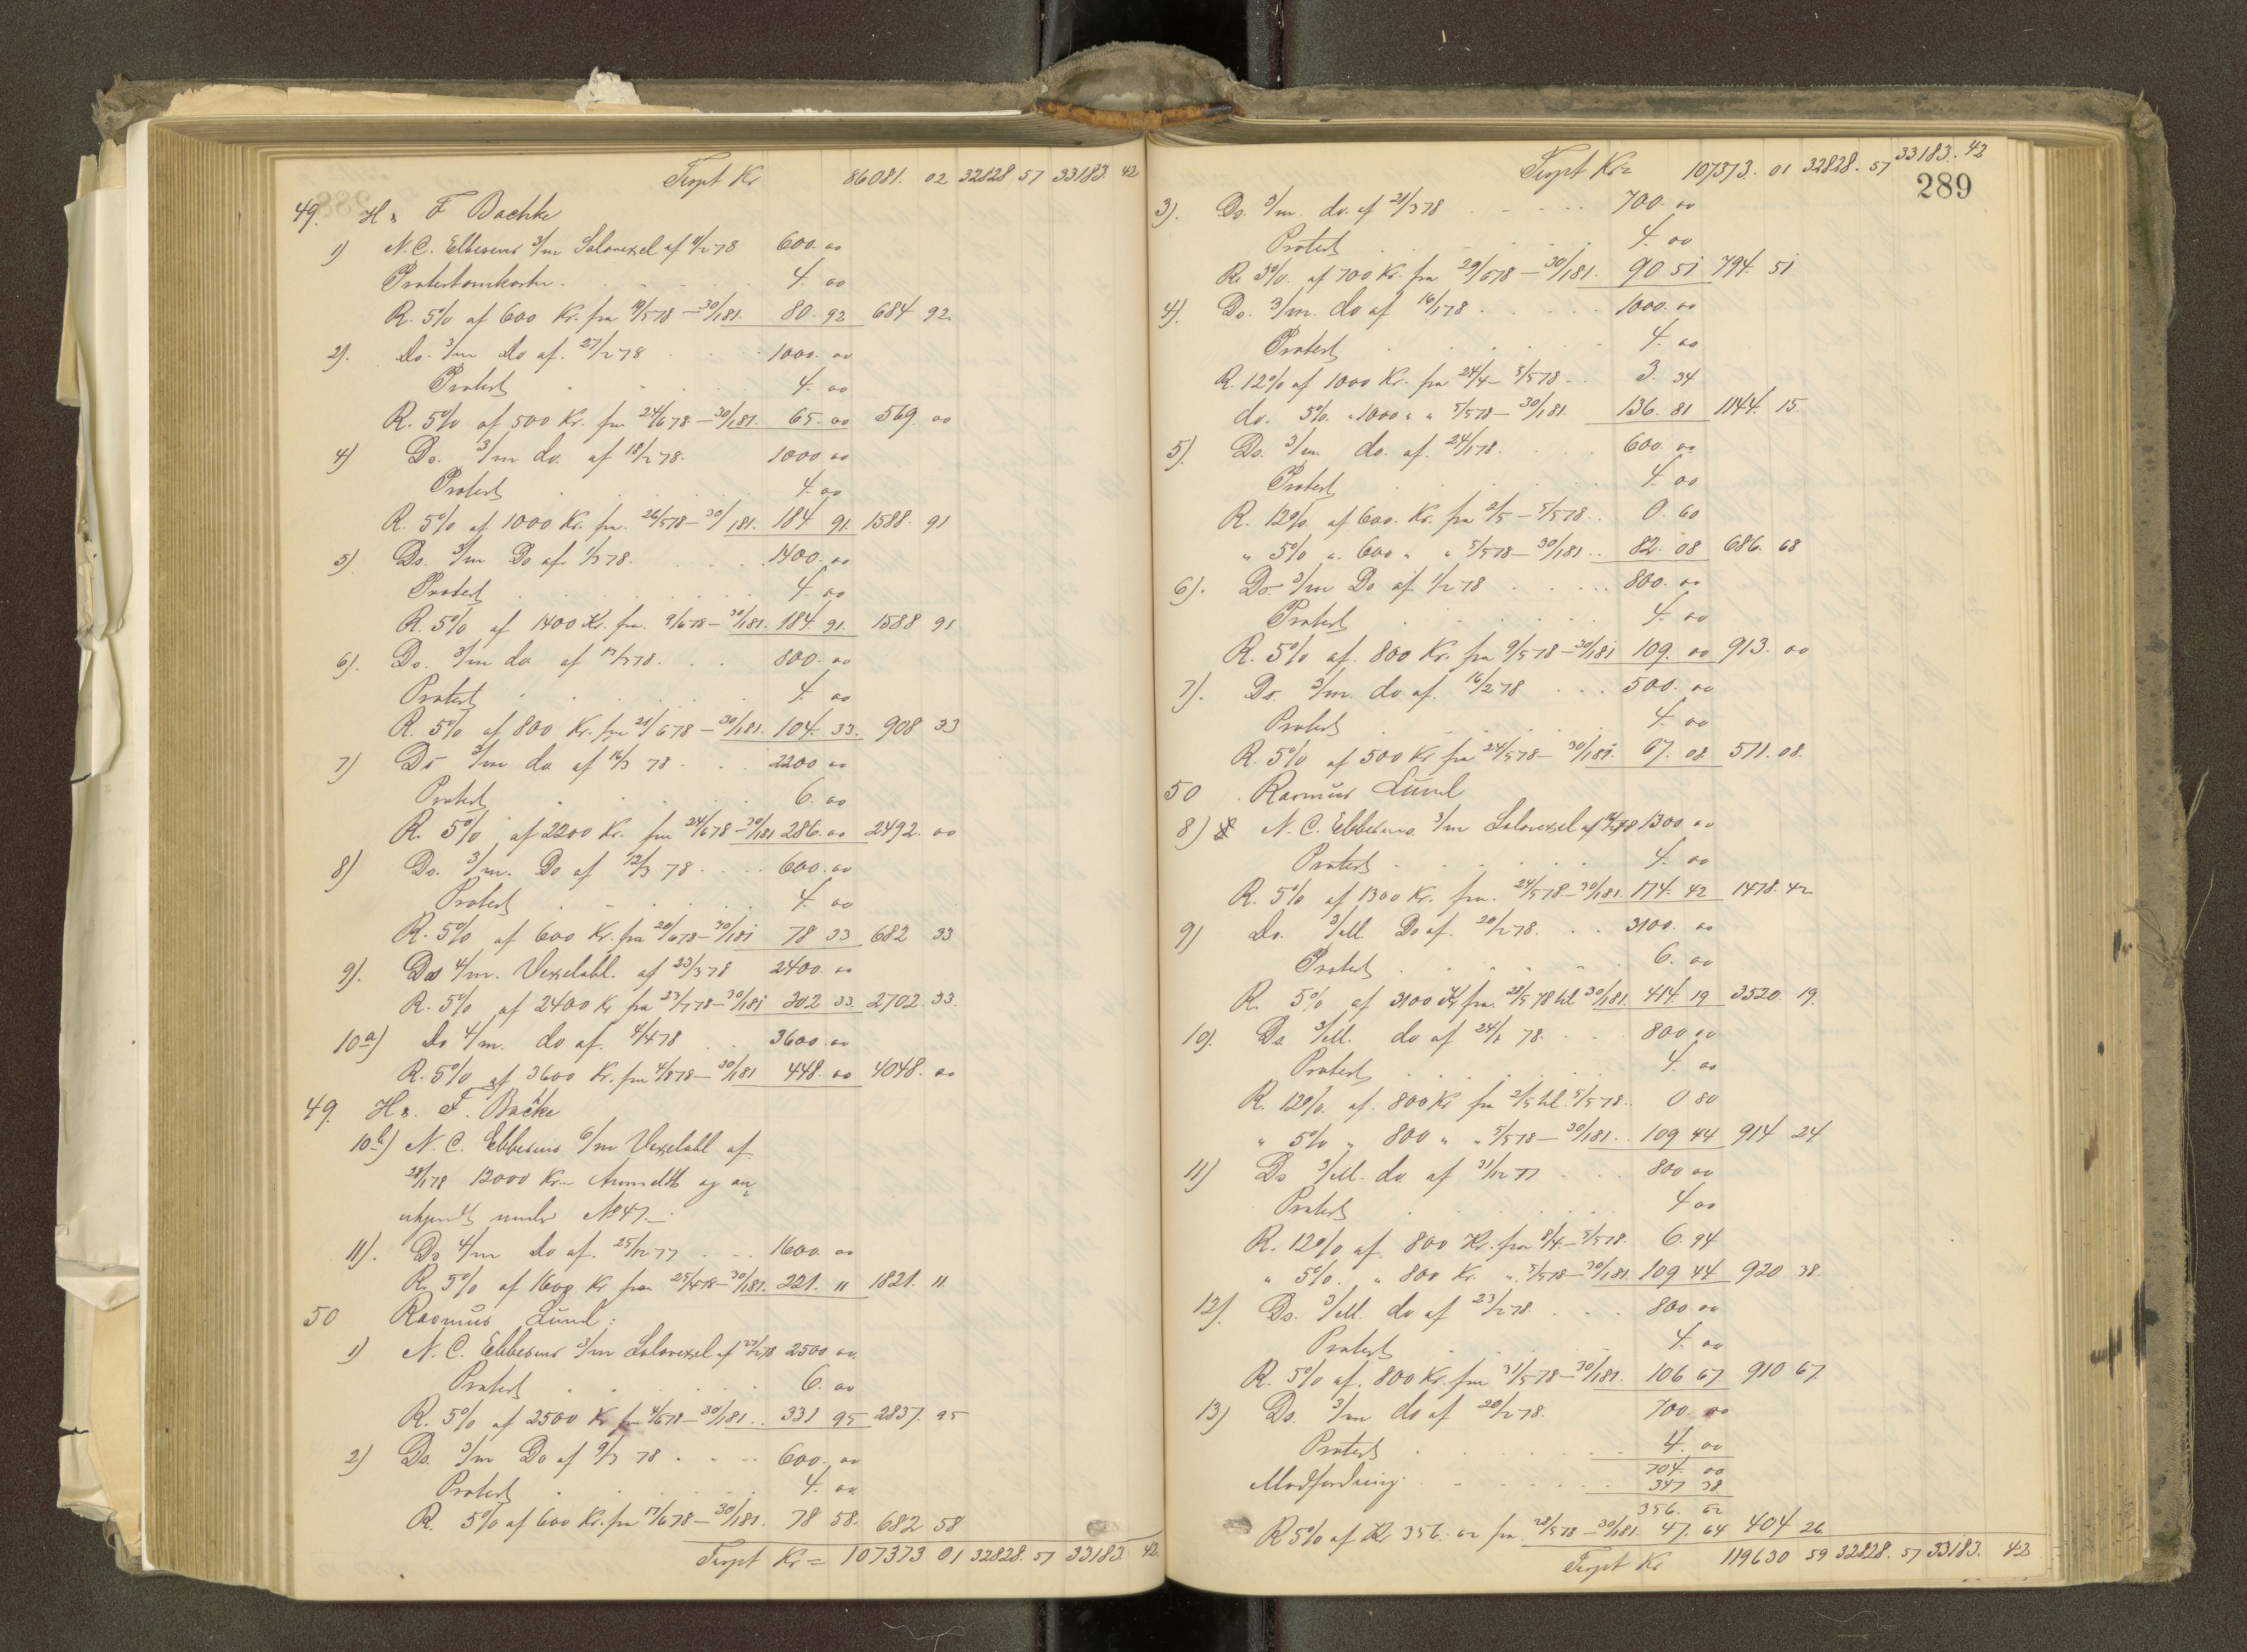 Trspt Kr 86081. 02 32828 57 33183. 42
49. H. F Bachke
1) N. C. Ebbesens 3/m Solavexel af 11/2 78 600. 00
Protestomkostn. 4. 00
R. 5% af 600 Kr. fra 19/5 78 - 30/1 81. 80. 92 684 92.
2). Do. 3/m Do af. 27/2 78 1000. 00
Protest 4. 00
R. 5% af 500 Kr. fra 24/6 78 - 30/1 81. 65. 00 569. 00
4) Do. 3/m do. af 18/2 78. 1000 00
Protest 4. 00
R. 5% af 1000 Kr. fra. 26/5 78 - 30/1 81. 184 91. 1588. 91
5) Do. 3/m Do af 1/3 78. 1400. 00
Protest 4. 00
R. 5% af 1400 Kr. fra. 9/6 78 - 30/1 81. 184. 91. 1588 91
6). Do. 3/m do af 13/3 78. 800. 00
Protest 4. 00
R. 5% af 800 Kr. fra 21/6 78 - 30/1 81. 104. 33. 908 33
7) Do 3/m do af 16/3 78. 2200 00
Protest 6. 00
R. 5% af 2200 Kr. fra 24/6 78 - 30/1 81 286. 00 2492. 00
8) Do. 3/m. Do af 12/3 78 600. 00
Protest 4. 00
R. 5% af 600 Kr. fra 20/6 78 - 30/1 81 78 33 682 33
9). Do 4/m. Vexelobl. af 23/3 78 2400. 00
R. 5% af 2400 Kr fra 23/7 78 - 30/1 81 302 33. 2702. 33.
10a) Do 4/m. do af. 4/4 78 3600. 00
R. 5% af 3600 Kr. fra 4/8 78 - 30/1 81 448. 00 4048. 00
49. H. F. Backe
10b) N. C. Ebbesens 6/m Vexelobl af
28/1 78 12000 Kr. Anmeldt og an
erkjendt under No 47.
11). Do 4/m do af. 25/12 77 1600. 00
R. 5% af 1600 Kr fra 25/4 78 - 30/1 81. 221. 11 1821. 11.
50 Rasmus Lund:
1) N. C. Ebbesens 3/m Solavexel af 27/2 78 2500 00.
Protest 6. 00
R. 5% af 2500 Kr fra 4/6 78 - 30/1 81. 331 95 2837. 95
2) Do. 3/m Do af 9/3 78 600. 00
Protest 4. 00
R. 5% af 600 Kr. fra 17/6 78 - 30/1 81. 78 58. 682 58
Trspt Kr = 107373 01 32828. 57 33183. 42.
Trspt Kr = 107373. 01 32828. 57 33183. 42
289
3). Do. 3/m. do. af 21/3 78 700. 00
Protest 4. 00
R. 5%. af 700 Kr. fra 29/6 78 - 30/1 81. 90 51 794. 51
4). Do. 3/m. do af 16/1 78 1000. 00
Protest 4. 00
R. 12% af 1000 Kr. fra 24/4 - 5/5 78 3. 34
do. 5%. " 1000 " " 5/5 78 - 30/1 81. 136. 81 1144. 15.
5). Do. 3/m do. af. 24/1 78. 600. 00
Protest 4. 00
R. 12%. af 600. Kr. fra 2/5 - 5/5 78 0. 60
" 5% " 600 " " 5/5 78 - 30/1 81 82. 08 686. 68
6). Do 3/m Do af 1/2 78 800. 00
Protest 4. 00
R. 5% af. 800 Kr. fra 9/5 78 - 30/1 81 109. 00 913. 00
7). Do 3/m. do af. 16/2 78 500. 00
Protest 4. 00
R. 5% af 500 Kr fra 24/5 78 - 30/1 81. 67. 08. 571. 08.
50 Rasmus Lund
8) N. C. Ebbesens. 3/m Solavexel af 16/2 78 1300 00
Protest 4. 00
R. 5% af 1300 Kr. fra. 24/5 78 - 30/1 81. 174. 42 1478. 42
9) Do. 3/M. Do af. 20/2 78. 3100. 00
Protest 6. 00
R. 5% af 3100 Kr fra. 28/5 78 til 30/1 81. 414. 19 3520. 19.
10). Do. 3/M. do af 24/1 78. 800 00
Protest 4. 00
R. 12%. af. 800 Kr fra 2/5 til. 5/5 78. 0 80
" 5% " 800 " " 5/5 78 - 30/1 81. 109 44 914 24.
11) Do 3/M. do. af 31/12 77 800 00
Protest 4 00
R. 12% af. 800 Kr. fra 8/4 - 5/5 78. 6. 94
" 5%. " 800 Kr. " 5/5 78 - 30/1 81. 109 44 920 38.
12). Do. 3/M. do af 23/2 78. 800 00
Protest 4. 00
R. 5% af. 800 Kr. fra 31/5 78 - 30/1 81. 106 67 910 67.
13) Do. 3/m do af 20/2 78. 700. 00
Protest 4. 00
704. 00
Modfordring. 347 38.
356. 62
R 5% af Kr 356. 62 fra 28/5 78 - 30/1 81. 47. 64 404 26
Trspt Kr 119630 59 32828. 57 33183. 42